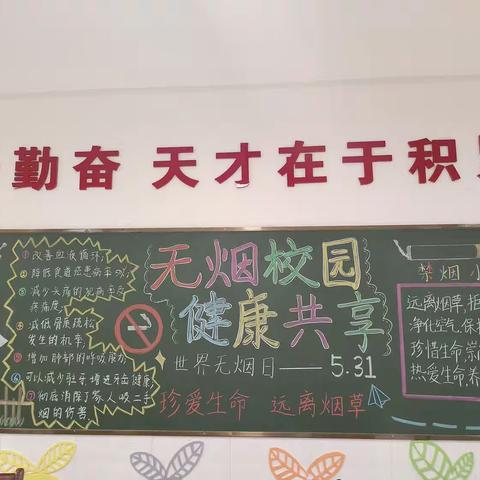 勤奋 天才在于积
①改善血液循环;
②降低食道癌患病率50%;
③减少头痛的
④减低骨质疏松
发生的机率;
⑤增加肺部的呼吸能力
⑥可以减少蛀牙,增进牙齿健康
⑦彻底消除了家人吸二手
烟的伤害
无烟校园
健康共享
世界无烟日——5.31
珍爱生命 远离烟草
禁烟小
远离烟草,拒
净化空气,保护
珍惜生命,崇
热爱生命,养